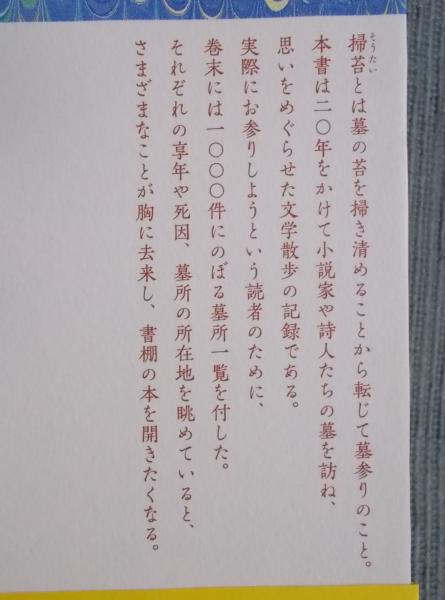 掃苔とは墓の苔を掃き清めることから転じて墓参りのこと。
そうたい
本書は二〇年をかけて小説家や詩人たちの墓を訪ね、
思いをめぐらせた文学散歩の記録である。
実際にお参りしようという読者のために、
巻末には一〇〇〇件にのぼる墓所一覧を付した。
それぞれの享年や死因、墓所の所在地を眺めていると、
さまざまなことが胸に去来し、書棚の本を開きたくなる。